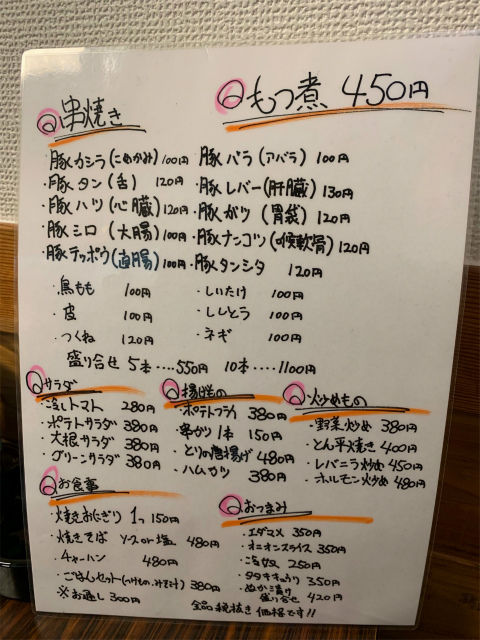 もつ煮 450円
串焼き
・豚カシラ(こめかみ) 100円 ・豚バラ(アバラ) 100円
・豚タン(舌) 120円 ・豚レバー(肝臓) 130円
・豚ハツ(心臓) 120円 ・豚ガツ(胃袋) 120円
・豚シロ(大腸) 100円 ・豚ナンコツ(喉軟骨) 120円
・豚テッポウ(直腸) 100円 ・豚タンシタ 120円
・鳥もも 100円 ・しいたけ 100円
・皮 100円 ・ししとう 100円
・つくね 120円 ・ネギ 100円
盛り合せ 5本‥‥550円 10本‥‥1100円
サラダ
・冷しトマト 280円
・ポテトサラダ 380円
・大根サラダ 380円
・グリーンサラダ 380円
揚げもの
・ポテトフライ 380円
・串カツ1本 150円
・とりの唐揚げ 480円
・ハムカツ 380円
炒めもの
・野菜炒め 380円
・とん平焼き 400円
・レバニラ炒め 450円
・ホルモン炒め 480円
お食事
・焼きおにぎり 1つ 150円
・焼きそば ソース or 塩 480円
・チャーハン 480円
・ごはんセット(つけもの、みそ汁) 380円
※お通し 300円
おつまみ
・エダマメ 350円
・オニオンスライス 350円
・冷奴 250円
・タタキキュウリ 350円
・ぬか漬け
盛り合せ 420円
全品税抜き価格です!!